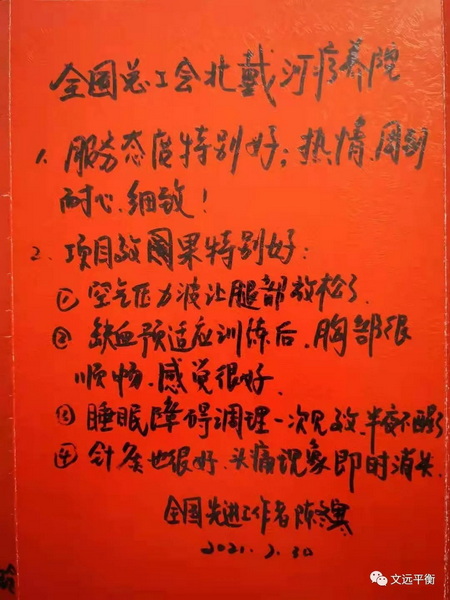 全国总工会北戴河疗养院
1. 服务态度特别好；热情、周到
耐心、细致！
2. 项目效果特别好：
① 空气压力波让腿部放松了.
② 缺血预适应训练后、胸部很
顺畅、感觉很好.
③ 睡眠障碍调理一次见效、半夜不醒了
④ 针灸也很好、头痛现象即时消失.
全国先进工作者陈冬寒
2021.7.30
文远平衡